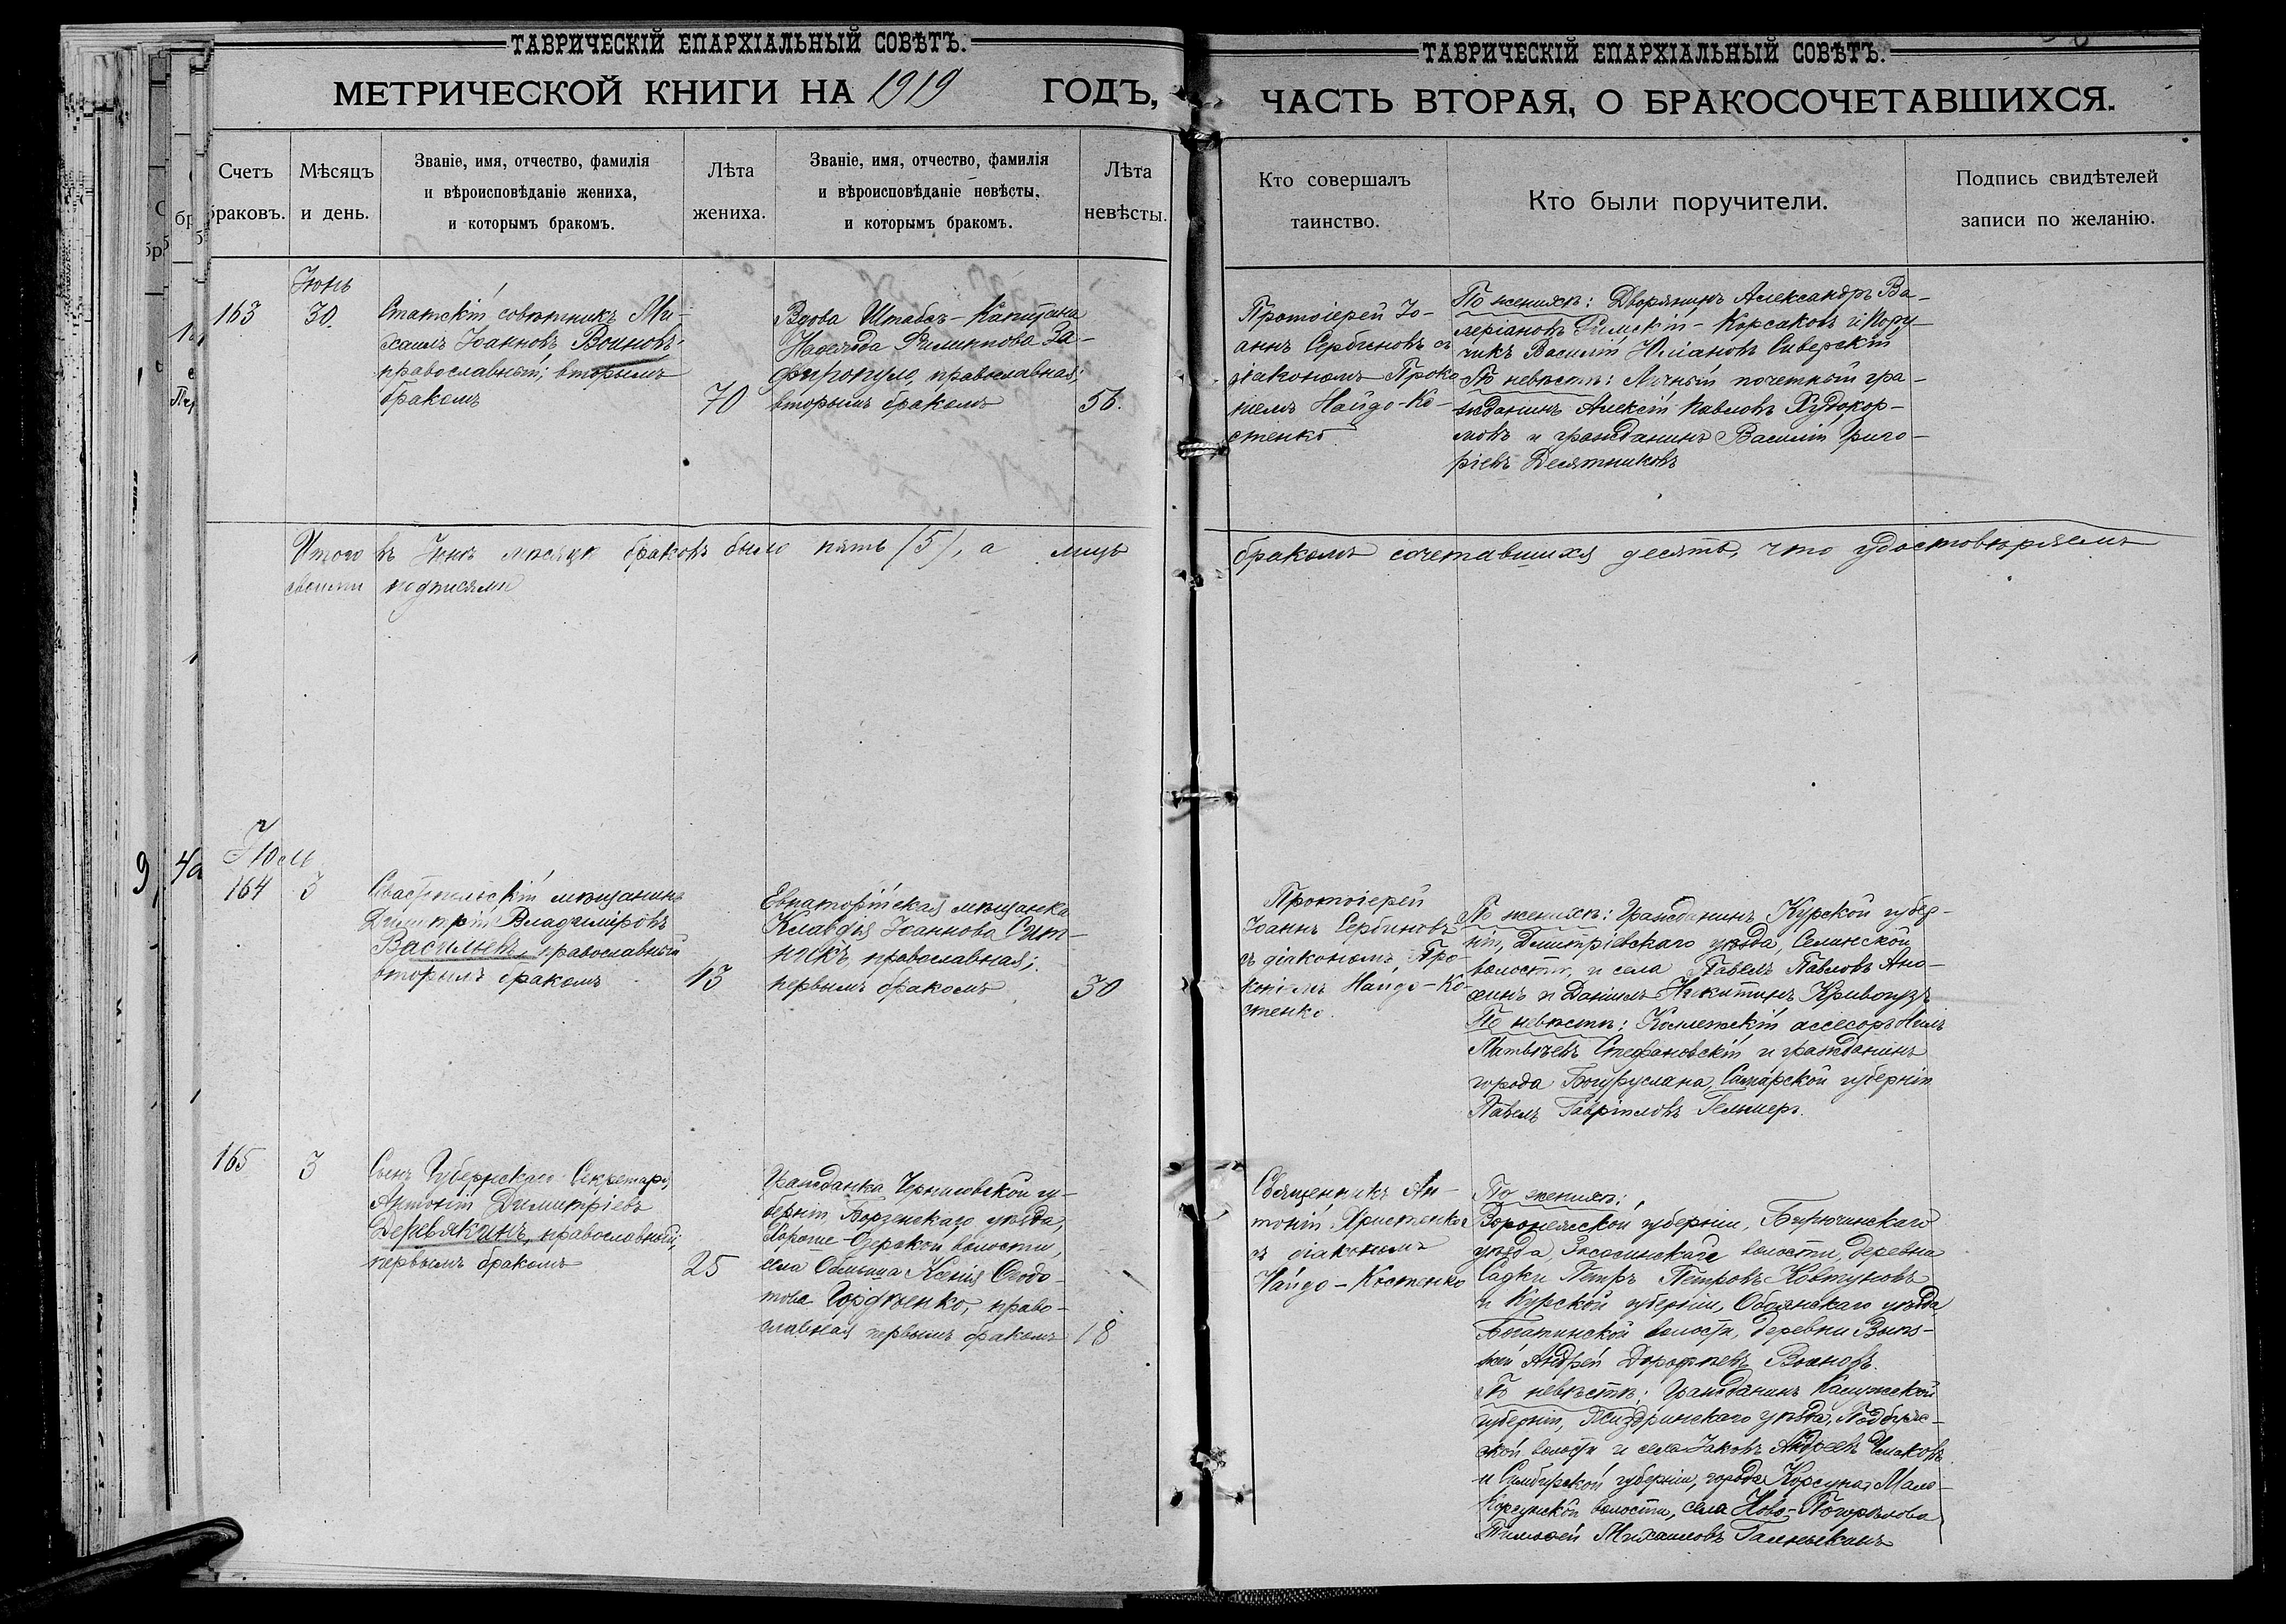 ТАВРИЧЕСКІЙ ЕПАРХІАЛЬНЫЙ СОВѢТЪ.
МЕТРИЧЕСКОЙ КНИГИ НА 1919 ГОДЪ,
Счетъ
браковъ.
Мѣсяцъ
и день.
Званіе, имя, отчество, фамилія
и вѣроисповѣданіе жениха,
и которымъ бракомъ.
Лѣта
жениха.
Званіе, имя, отчество, фамилія
и вѣроисповѣданіе невѣсты,
и которымъ бракомъ.
Лѣта
невѣсты.
ТАВРИЧЕСКІЙ ЕПАРХІАЛЬНЫЙ СОВѢТЪ.
ЧАСТЬ ВТОРАЯ, О БРАКОСОЧЕТАВШИХСЯ.
Кто совершалъ
таинство.
Кто были поручители.
Подпись свидѣтелей
записи по желанію.
163
Іюнь
30.
Статскій совѣтникъ Ми-
хаилъ Іоанновъ Воиновъ,
православный; вторымъ
бракомъ
70
Вдова Штабсъ-Капитана
Надежда Филиппова За-
фиропуло, православная;
вторымъ бракомъ
56.
Протоіерей Іо-
аннъ Сербиновъ съ
діакономъ Проко
піемъ Найдо-Ко-
стенко.
По женихѣ: Дворянинъ Александръ Ва-
леріановъ Римскій-Корсаковъ и Пору-
чикъ Василій Юліановъ Сиверскій
По невѣстѣ: Личный почетный гра-
жданинъ Алексій Павловъ Худокор-
мовъ и гражданинъ Василій Григо-
ріевъ Десятниковъ
Итого въ Іюнѣ мѣсяцѣ браковъ было пять (5), а лицъ бракомъ сочетавшихся десять, что удостовѣряемъ
своими подписями
Іюль
164
3
Севастопольскій мѣщанинъ
Димитрій Владиміровъ
Васильевъ, православный
вторымъ бракомъ
43
Евпаторійская мѣщанка
Клавдія Іоаннова Сит-
никъ, православная;
первымъ бракомъ
30
Протоіерей
Іоаннъ Сербиновъ
съ діакономъ Про-
копіемъ Найдо-Ко-
стенко.
По женихѣ: Гражданинъ Курской губер-
ніи, Дмитріевскаго уѣзда, Селинской
волости, и села Павелъ Павловъ Ано-
хинъ и Даніилъ Никитинъ Кривопузъ
По невѣстѣ: Коллежскій ассесоръ Нилъ
Матвѣевъ Стефановскій и гражданинъ
города Богуруслана, Самарской губерніи
Павелъ Гавріиловъ Гельмеръ.
165
3
Сынъ Губернскаго Секретаря
Антоній Димитріевъ
Деревякинъ, православный;
первымъ бракомъ
25
Гражданка Черниговской гу-
берніи Борзенскаго уѣзда,
Хороше-Озерской волости,
села Ксенія Ѳеодо-
това Гордіенко, право-
славная первымъ бракомъ
18
Священникъ Ан-
тоній Христенко
съ діакономъ
Найдо-Костенко
По женихѣ:
Воронежской губерніи, Бирюченскаго
уѣзда, волости, деревни
Садки Петръ Петровъ Ковтуновъ
и Курской губерніи, Обоянскаго уѣзда
Богатинской волости, деревни
Андрей Дороѳеевъ
По невѣстѣ: Гражданинъ Калужской
губерніи, Жиздринскаго уѣзда, Подбуж-
ской волости и села Іаковъ Андреевъ
и Симбирской губерніи, города Корсуна, Мало-
Корсунской волости, села Ново-Погорѣлова
Тимоѳей Михаиловъ